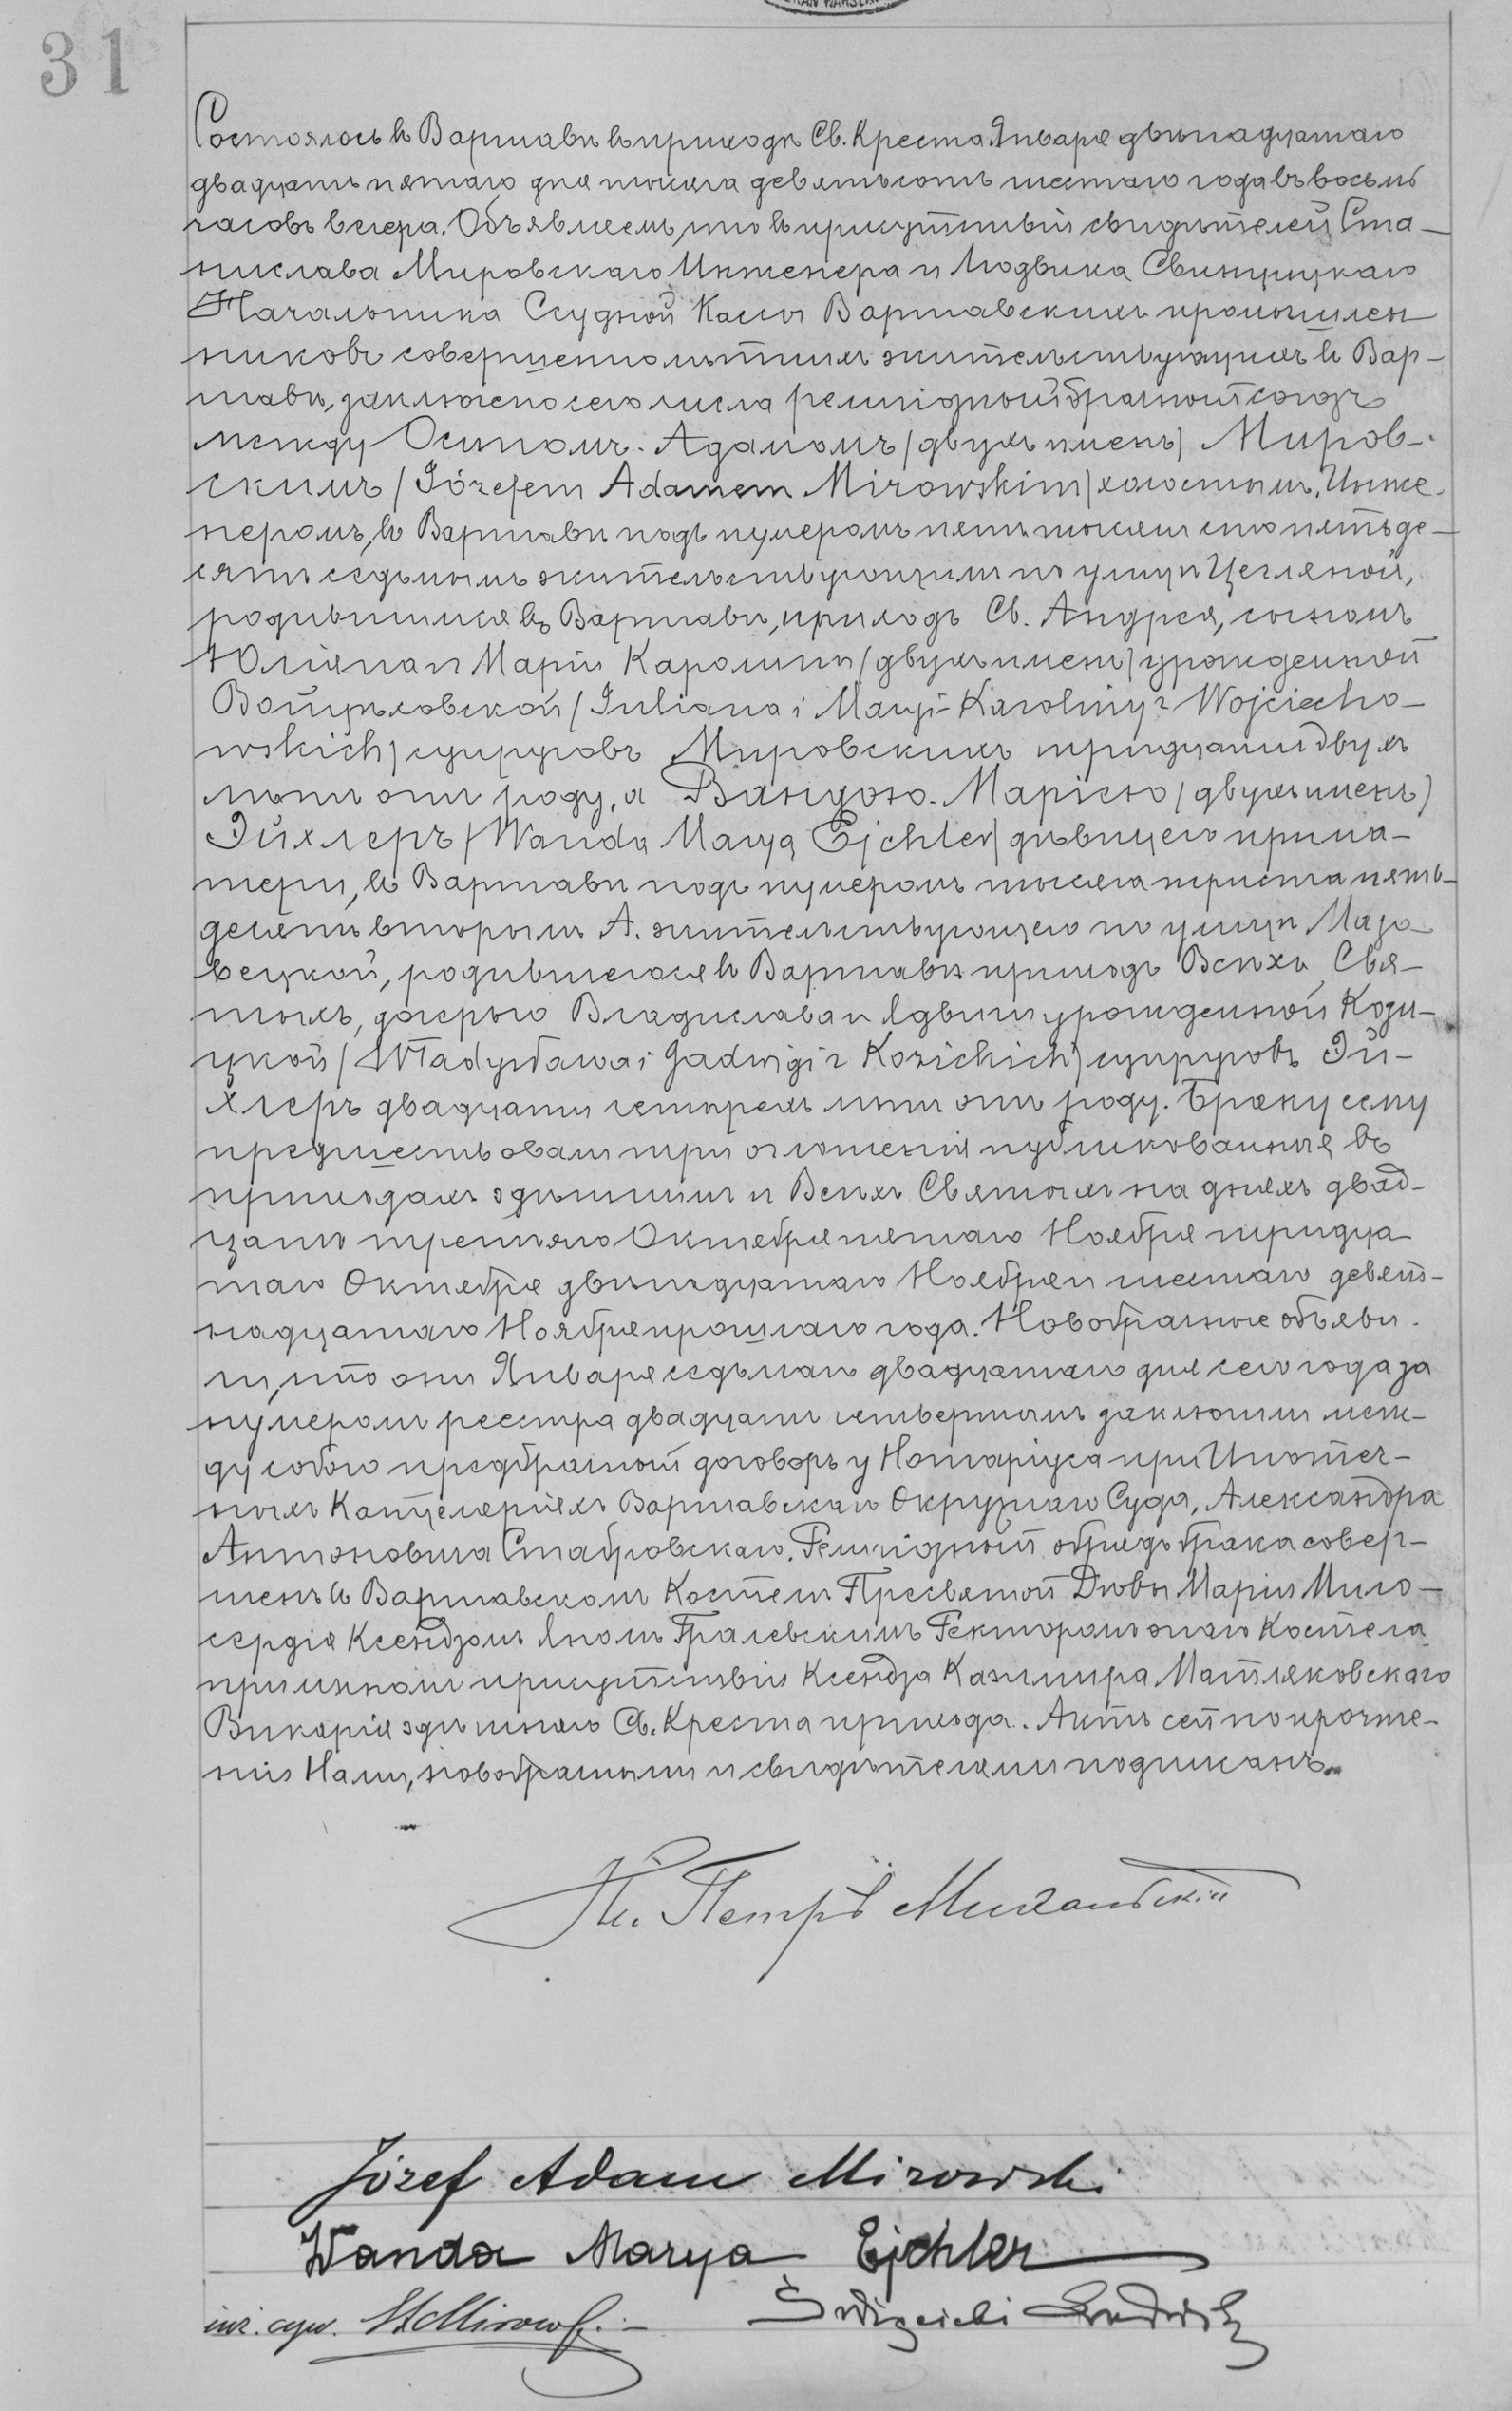 31
Состоялось въ Варшавѣ въ приходѣ Св. Креста Января двѣнадцатаго
двадцать пятаго дня тысяча девятьсотъ шестаго года въ восемь
часовъ вечера. Объявляемъ, что въ присутствіи свидѣтелей Ста-
нислава Мировскаго Инженера и Людвика Свинцицкаго
Начальника Ссудной Кассы Варшавскихъ промышлен
никовъ совершеннолѣтнихъ жительствующихъ въ Вар-
шавѣ, заключенъ сего числа религіозный брачный союзъ
между Осипомъ-Адамомъ (двухъ именъ) Миров-
скимъ (Józefem Adamem Mirowskim) холостымъ, Инже-
неромъ, въ Варшавѣ подъ нумеромъ пять тысячъ сто пятьде-
сятъ седьмымъ жительствующимъ по улицѣ Цегляной,
родившимся въ Варшавѣ, приходѣ Св. Андрея, сыномъ
Юліяна и Маріи Каролины (двухъ именъ) урожденной
Войцѣховской (Juliana i Maryi-Karoliny z Wojciecho-
wskich) супруговъ Мировскихъ тридцати двухъ
лѣтъ отъ роду, и Вандою-Маріею (двухъ именъ)
Эйхлеръ (Wandą Maryą Ejchler) дѣвицею при ма-
тери, въ Варшавѣ подъ нумеромъ тысяча триста пять-
десятъ вторымъ А. жительствующею по улицѣ Мазо
вецкой, родившеюся въ Варшавѣ приходѣ Всѣхъ Свя-
тыхъ, дочерью Владислава и Ядвиги урожденной Кози-
цкой (Władysława i Jadwigi z Kozickich) супруговъ Эй-
хлеръ двадцати четырехъ лѣтъ отъ роду. Браку сему
предшествовали три оглашенія публикованныя въ
приходахъ здѣшнимъ и Всѣхъ Святыхъ на дняхъ двад-
цать третьяго Октября пятаго Ноября тридца
таго Октября двѣнадцатаго Ноября и шестаго девят-
надцатаго Ноября прошлаго года. Новобрачные объяви-
ли, что они Января седьмаго двадцатаго дня сего года за
нумеромъ реестра двадцать четвертымъ заключили меж-
ду собою предбрачный договоръ у Нотаріуса при Ипотеч-
ныхъ Канцеляріяхъ Варшавскаго Окружнаго Суда, Александра
Антоновича Стабровскаго. Религіозный обрядъ брака совер-
шенъ въ Варшавскомъ Костелѣ Пресвятой Дѣвы Маріи Мило-
сердія Ксендзомъ Яномъ Гралевскимъ Ректоромъ онаго Костела
при личномъ присутствіи Ксендза Казимира Матляковскаго
Викарія здѣшняго Св. Креста прихода. Актъ сей по прочте-
ніи Нами, новобрачными и свидѣтелями подписанъ.
Кс. Петръ
Józef Adam Mirowski
Wanda Marya Ejchler
inż. cyw. St. Mirowski
Święcicki Ludwik